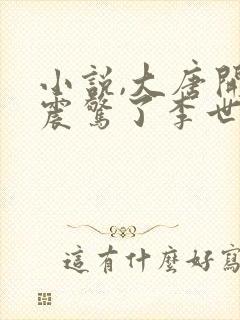 小說,大唐開
震驚了李世
這有什麼好寫